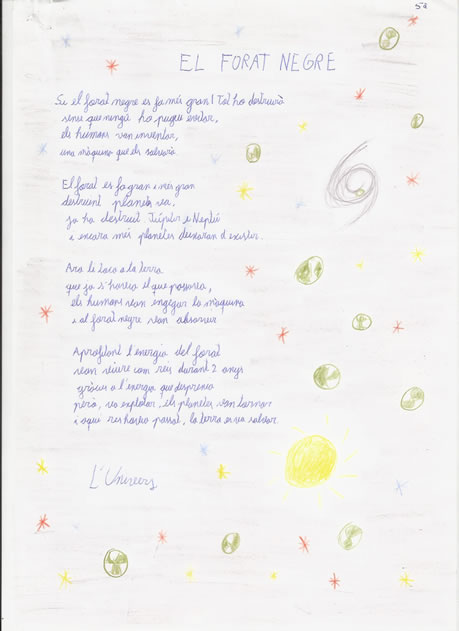 5è
EL FORAT NEGRE
Si el forat negre es fa més gran! Tot ho destruirà
sense que ningú ho pugui evitar,
els humans van inventar,
una màquina que els salvarà.
El forat es fa gran i més gran
destruint planetes va,
ja ha destruit Júpiter i Neptú
i encara més planetes deixaran d'existir.
Ara le toca a la terra
que ja s'havia el que passaria,
els humans van engegar la màquina
i al forat negre van absorvir
Aprofitant l'energia del forat
van viure com reis durant 2 anys
gràcies a l'energia que desprenia
però, va explotar, els planetes van tornar
i aquí res havia passat, la terra es va salvar.
L'Univers